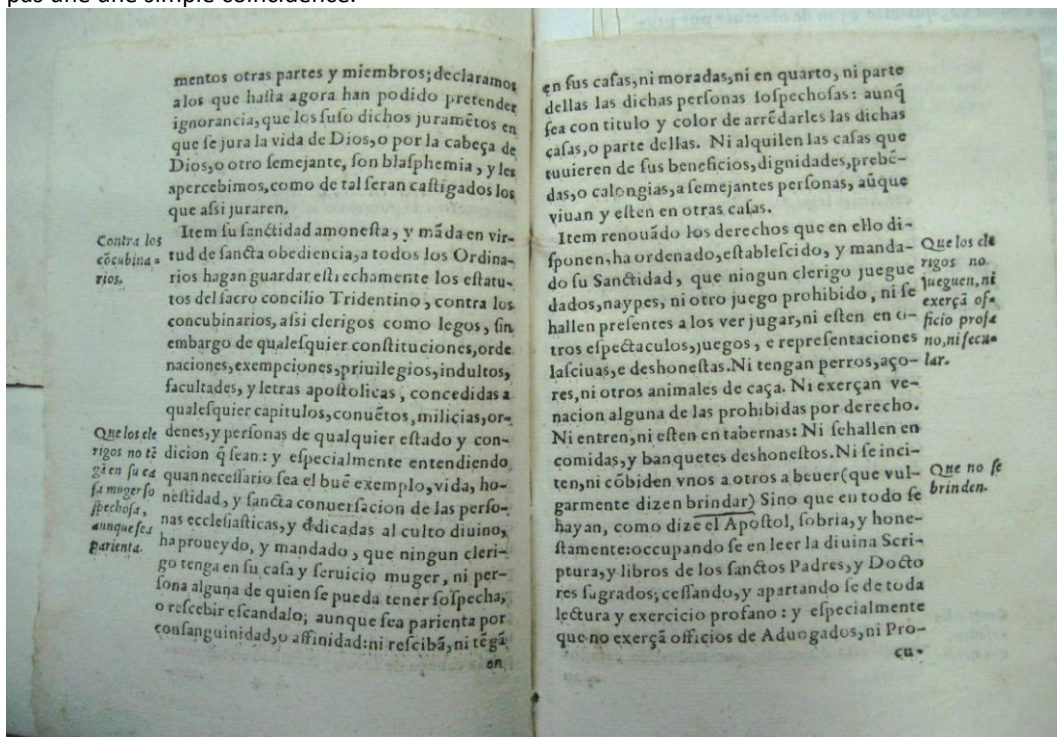 pas une une simple coincidence.
mentos otras partes y miembros; declaramos
a los que haſta agora han podido pretender
ignorancia, que los ſuſo dichos juramẽtos en
que ſe jura la vida de Dios, o por la cabeça de
Dios, o otro ſemejante, ſon blaſphemia, y les
apercebimos, como de tal ſeran caſtigados los
que aſsi juraren.
Contra los
cõcubina-
rios.
Item ſu ſanctidad amoneſta, y mãda en vir-
tud de ſancta obediencia, a todos los Ordina-
rios hagan guardar eſtrechamente los eſtatu-
tos del ſacro concilio Tridentino, contra los
concubinarios, aſsi clerigos como legos, ſin
embargo de qualeſquier conſtituciones, orde
naciones, exempciones, priuilegios, indultos,
facultades, y letras apoſtolicas, concedidas a
qualeſquier capitulos, conuẽtos, milicias, or-
denes, y perſonas de qualquier eſtado y con-
dicion q̃ ſean: y eſpecialmente entendiendo
quan neceſſario ſea el buẽ exemplo, vida, ho-
neſtidad, y ſancta conuerſacion de las perſo-
nas eccleſiaſticas, y dedicadas al culto diuino,
ha proueydo, y mandado, que ningun cleri-
go tenga en ſu caſa y ſeruicio muger, ni per-
ſona alguna de quien ſe pueda tener ſoſpecha,
o reſcebir eſcandalo; aunque ſea parienta por
conſanguinidad, o affinidad: ni reſcibã, ni tẽgã
en
Que los cle
rigos no tẽ
gã en ſu ca
ſa muger ſo
ſpechoſa,
aunque ſea
parienta.
en ſus caſas, ni moradas, ni en quarto, ni parte
dellas las dichas perſonas ſoſpechoſas: aunq̃
ſea con titulo y color de arrẽdarles las dichas
caſas, o parte dellas. Ni alquilen las caſas que
tuuieren de ſus beneficios, dignidades, prebẽ-
das, o calongias, a ſemejantes perſonas, aũque
viuan y eſten en otras caſas.
Item renouãdo los derechos que en ello di-
ſponen, ha ordenado, eſtableſcido, y manda-
do ſu Sanctidad, que ningun clerigo juegue
dados, naypes, ni otro juego prohibido, ni ſe
hallen preſentes a los ver jugar, ni eſten en o-
tros eſpectaculos, juegos, e repreſentaciones
laſciuas, e deshoneſtas. Ni tengan perros, aço-
res, ni otros animales de caça. Ni exerçan ve-
nacion alguna de las prohibidas por derecho.
Ni entren, ni eſten en tabernas: Ni ſe hallen en
comidas, y banquetes deshoneſtos. Ni ſe inci-
ten, ni cõbiden vnos a otros a beuer (que vul-
garmente dizen brindar) Sino que en todo ſe
hayan, como dize el Apoſtol, ſobria, y hone-
ſtamente: occupando ſe en leer la diuina Scri-
ptura, y libros de los ſanctos Padres, y Docto
res ſagrados; ceſſando, y apartando ſe de toda
lectura y exercicio profano: y eſpecialmente
que no exerçã officios de Aduogados, ni Pro-
cu-
Que los cle
rigos no
jueguen, ni
exerçã of-
ficio profa
no, ni ſecu-
lar.
Que no ſe
brinden.